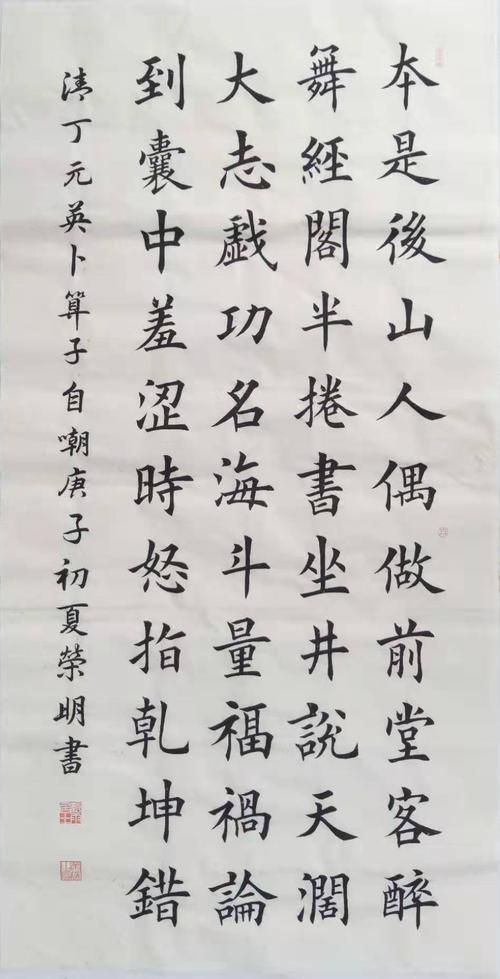 本是後山人偶做前堂客醉
舞經閣半捲書坐井說天濶
大志戲功名海斗量福禍論
到囊中羞涩時怒指乹坤錯
清丁元英卜算子自嘲庚子初夏榮明書